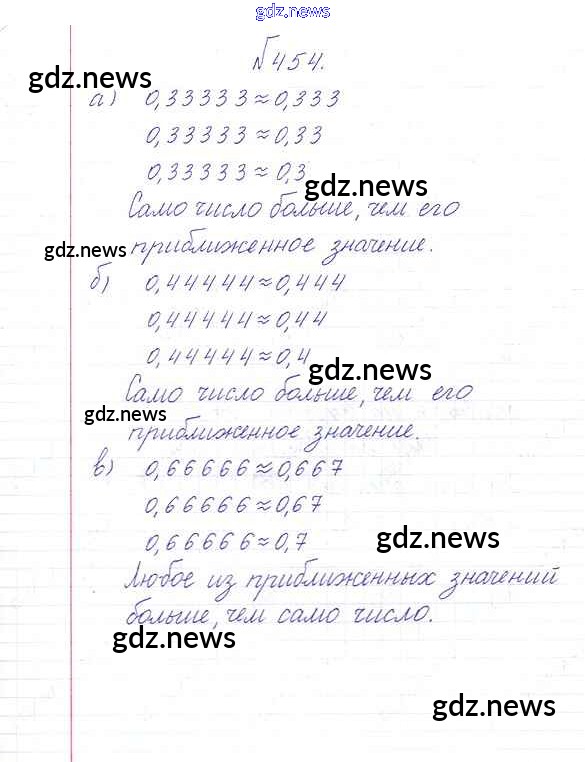 gdz.news
№454.
gdz.news
а) 0,33333≈0,333
0,33333≈0,33
0,33333≈0,3
gdz.news
Само число больше, чем его
gdz.news
приближенное значение.
б) 0,44444≈0,444
0,44444≈0,44
0,44444≈0,4
gdz.news
Само число больше, чем его
gdz.news
приближенное значение.
в) 0,66666≈0,667
0,66666≈0,67
0,66666≈0,7
gdz.news
Любое из приближенных значений
больше, чем само число.
gdz.news
gdz.news